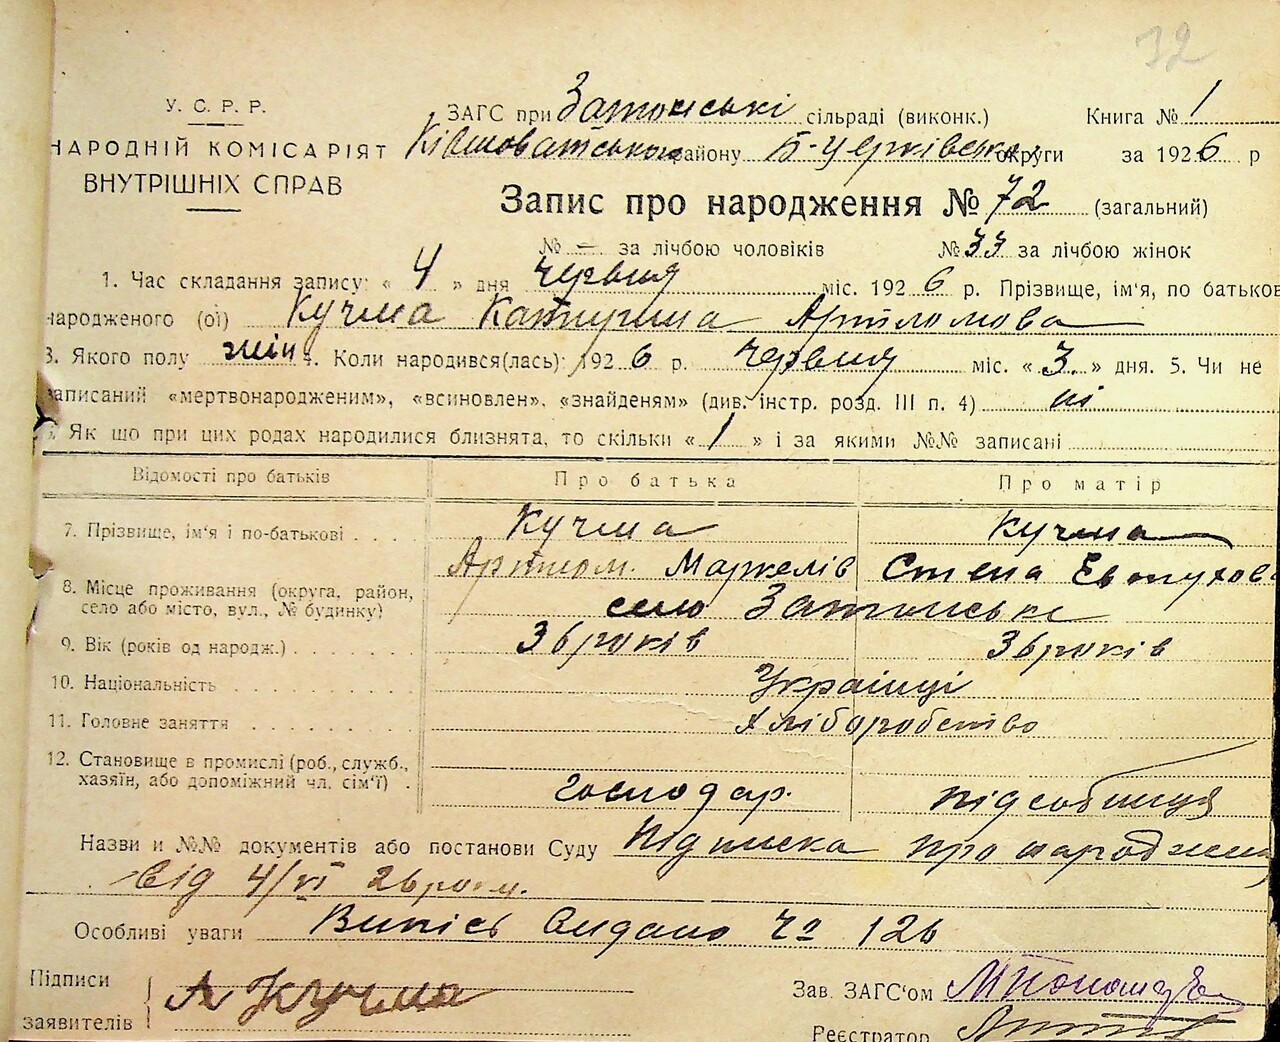 32
У. С. Р. Р.
НАРОДНІЙ КОМІСАРІЯТ
ВНУТРІШНІХ СПРАВ
ЗАГС при Затонські сільраді (виконк.) Книга № 1
Ківшоватського району Б-Церківсько округи за 1926 р
Запис про народження № 72 (загальний)
№ – за лічбою чоловіків № 33 за лічбою жінок
1. Час складання запису: « 4 » дня червня міс. 1926 р. Прізвище, ім'я, по батькові
народженого (ої) Кучма Катирина Артпомова
3. Якого полу жін 4. Коли народився(лась): 1926 р. червня міс. « 3 » дня. 5. Чи не
записаний «мертвонародженим», «всиновлен», «знайденям» (див. інстр. розд. III п. 4) ні
Як що при цих родах народилися близнята, то скільки « 1 » і за якими №№ записані
Відомості про батьків Про батька Про матір
7. Прізвище, ім'я і по-батькові Кучма Кучма
Артпом. Маркелів Степа Евтухова
8. Місце проживання (округа, район,
село або місто, вул., № будинку) село Затонське
9. Вік (років од народж.) 36 років 36 років
10. Національність Українці
11. Головне заняття Хліборобство
12. Становище в промислі (роб., служб.,
хазяїн, або допоміжний чл. сім'ї) господар. підсобниця
Назви и №№ документів або постанови Суду Підписка про народжен
від 4/VI 26 року.
Особливі уваги Випісь видано № 126
Підписи
заявителів А Кучма
Зав. ЗАГС'ом
Реєстратор